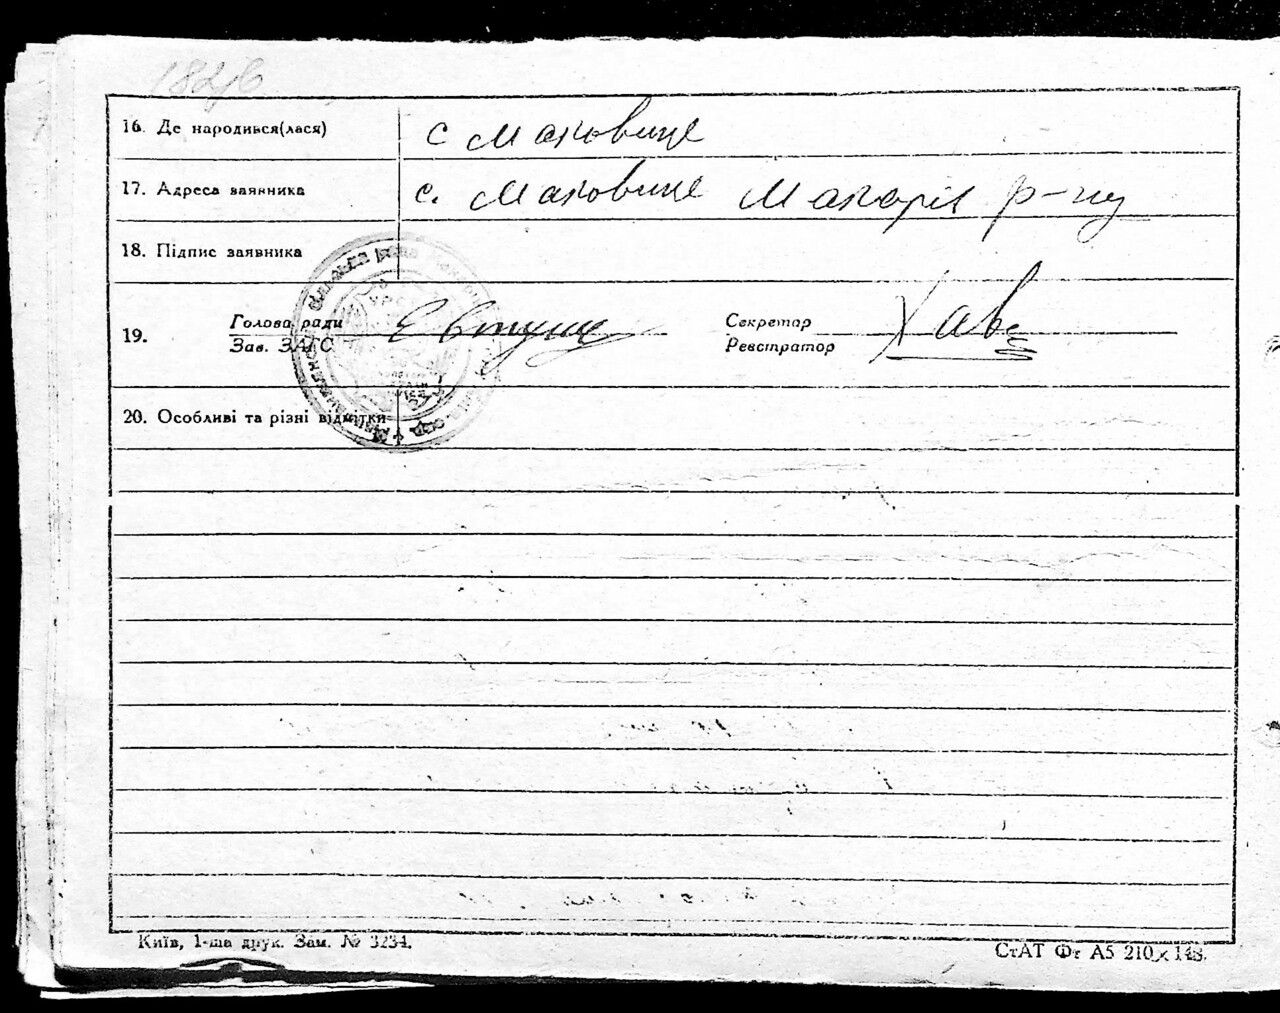 16. Де народився(лася)
с Маковище
17. Адреса заявника
с. Маковище Макарів р-ну
18. Підпис заявника
19.
Голова ради
Зав. ЗАГС
Секретар
Реєстратор
20. Особливі та різні відмітки
Київ, 1-ша друк. Зам. № 3234.
СтАТ Фт А5 210×148.